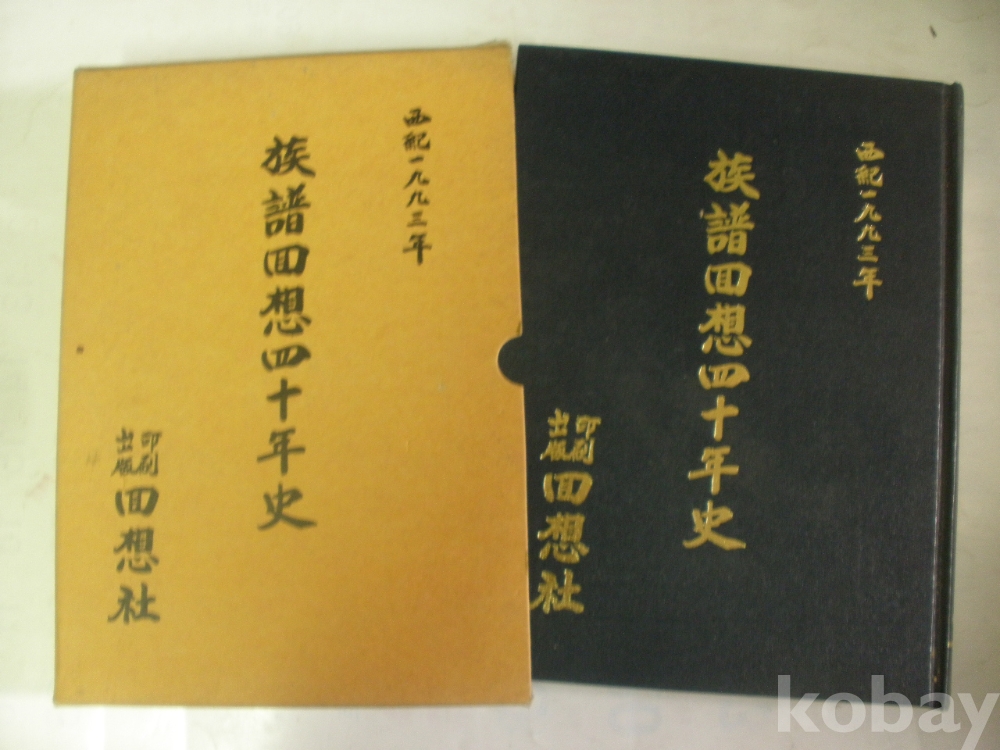 西紀一九九三年
族譜回想四十年史
印刷
出版
回想社
西紀一九九三年
族譜回想四十年史
印刷
出版
回想社
kobay